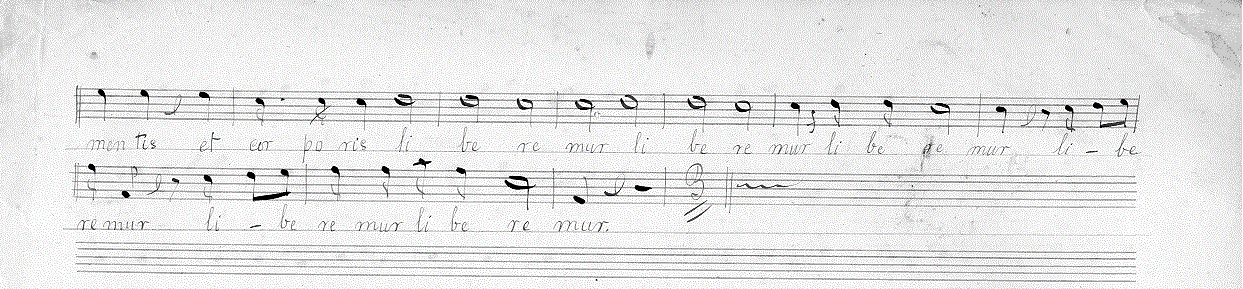 men tis et cor po ris li be re mur li be re mur li be re mur li - be
re mur li - be re mur li be re mur.